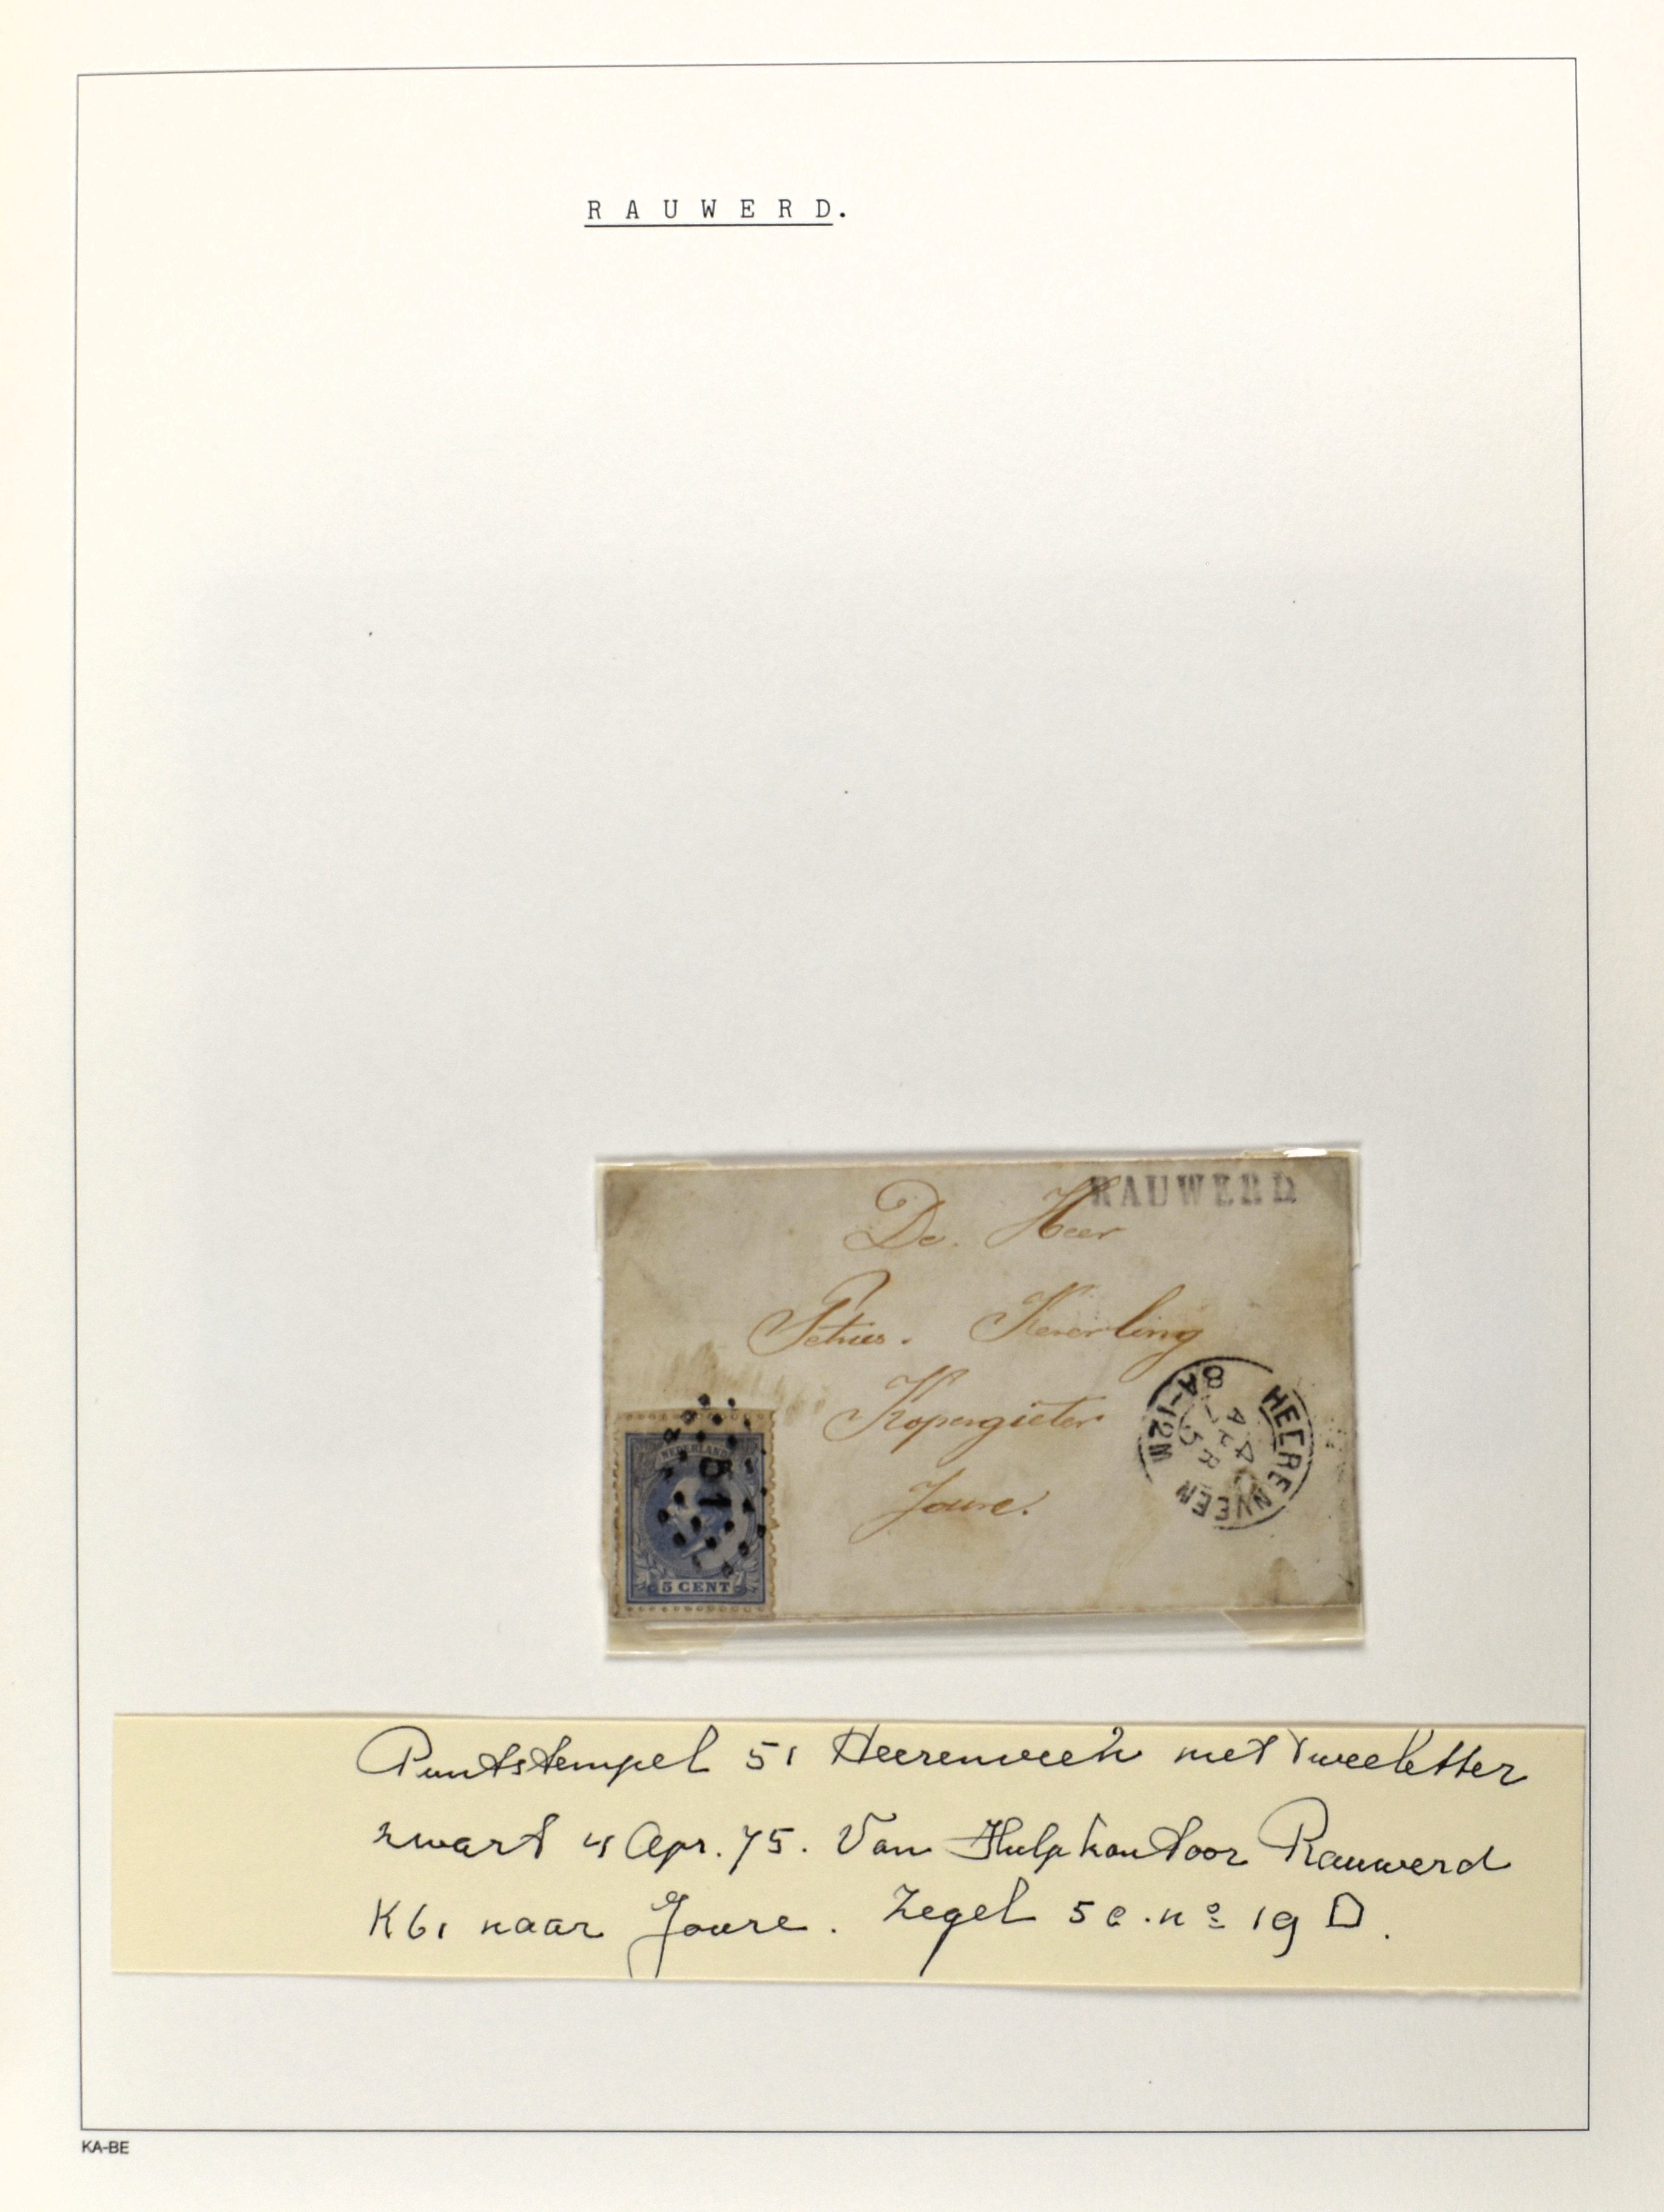 R A U W E R D.
RAUWERD
De Heer
Petrus. Keverling
Kopergieter
Joure.
HEERENVEEN
4 APR
75
8A-12M
NEDERLAND
51
5 CENT
Puntstempel 51 Heerenveen met tweeletter
zwart 4 Apr. 75. Van Hulpkantoor Rauwerd
K61 naar Joure. Zegel 5 c. no 19 D.
KA-BE